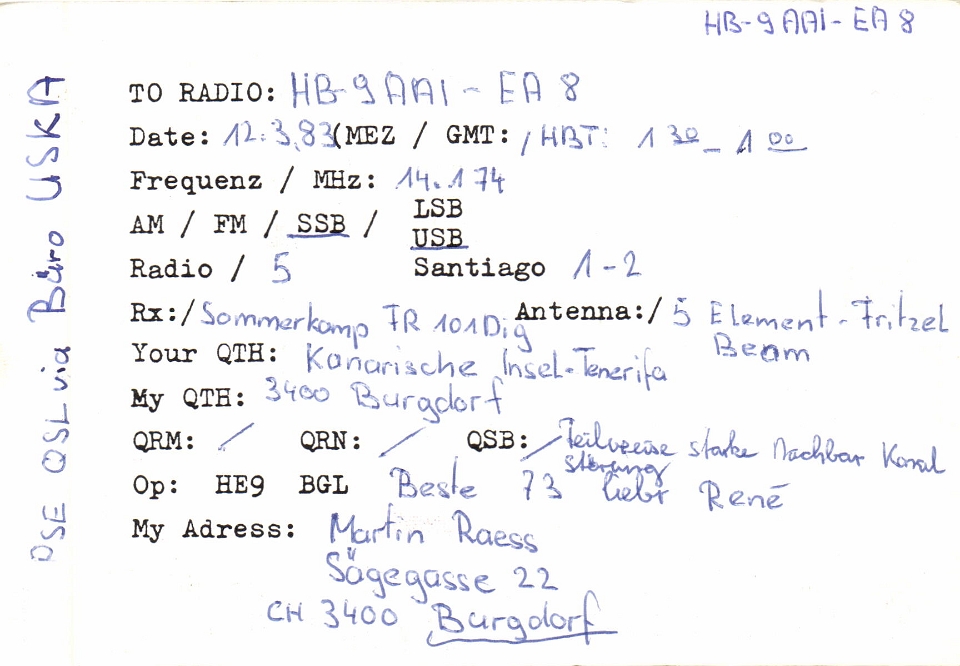 HB-9AAI-EA8
PSE QSL via Büro USKA
TO RADIO: HB-9AAI-EA8
Date: 12.3.83 (MEZ / GMT: / HBT: 1 30 - 1 00
Frequenz / MHz: 14.174
AM / FM / SSB / LSB
USB
Radio / 5 Santiago 1-2
Rx:/ Sommerkamp FR 101 Dig Antenna:/ 5 Element-Fritzel
Beam
Your QTH: Kanarische Insel-Tenerifa
My QTH: 3400 Burgdorf
QRM: / QRN: / QSB: / Teilweise starke Nachbar Kanal
störung
Op: HE9 BGL Beste 73 liebr René
My Adress: Martin Raess
Sägegasse 22
CH 3400 Burgdorf